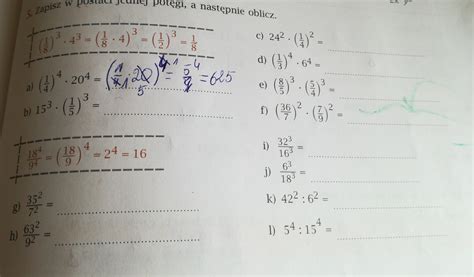 5. Zapisz w postaci jednej potęgi, a następnie oblicz.
(1/8)³ · 4³ = (1/8 · 4)³ = (1/2)³ = 1/8
a) (1/4)⁴ · 20⁴ =
b) 15³ · (1/5)³ =
18⁴/9⁴ = (18/9)⁴ = 2⁴ = 16
g) 35²/7² =
h) 63²/9² =
c) 24² · (1/4)² =
d) (1/3)⁴ · 6⁴ =
e) (8/5)³ · (5/4)³ =
f) (36/7)² · (7/9)² =
i) 32³/16³ =
j) 6³/18³ =
k) 42² : 6² =
l) 5⁴ : 15⁴ =